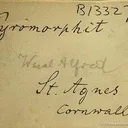 B13327
Pyromorphit
Wheal Alfred
St. Agnes
Cornwall